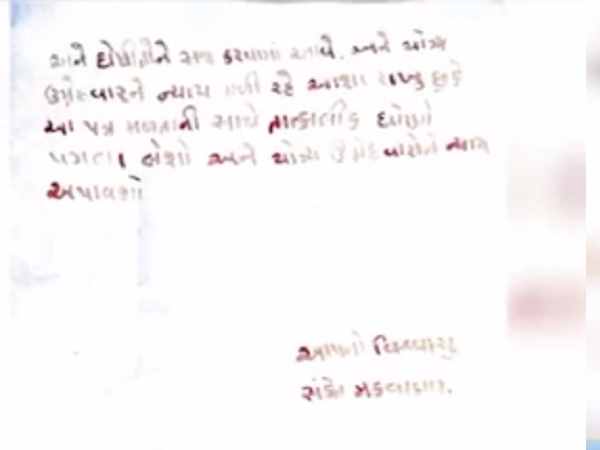 અને દોષીતોને સજા કરવામાં આવે. અને યોગ્ય
ઉમેદવારને ન્યાય મળી રહે આશા રાખુ છુ કે
આ પત્ર મળતાની સાથે તાત્કાલીક ધોરણે
પગલા લેશો અને યોગ્ય ઉમેદવારોને ન્યાય
અપાવશો
આપનો વિશ્વાસુ
સંકેત મકવાણા.